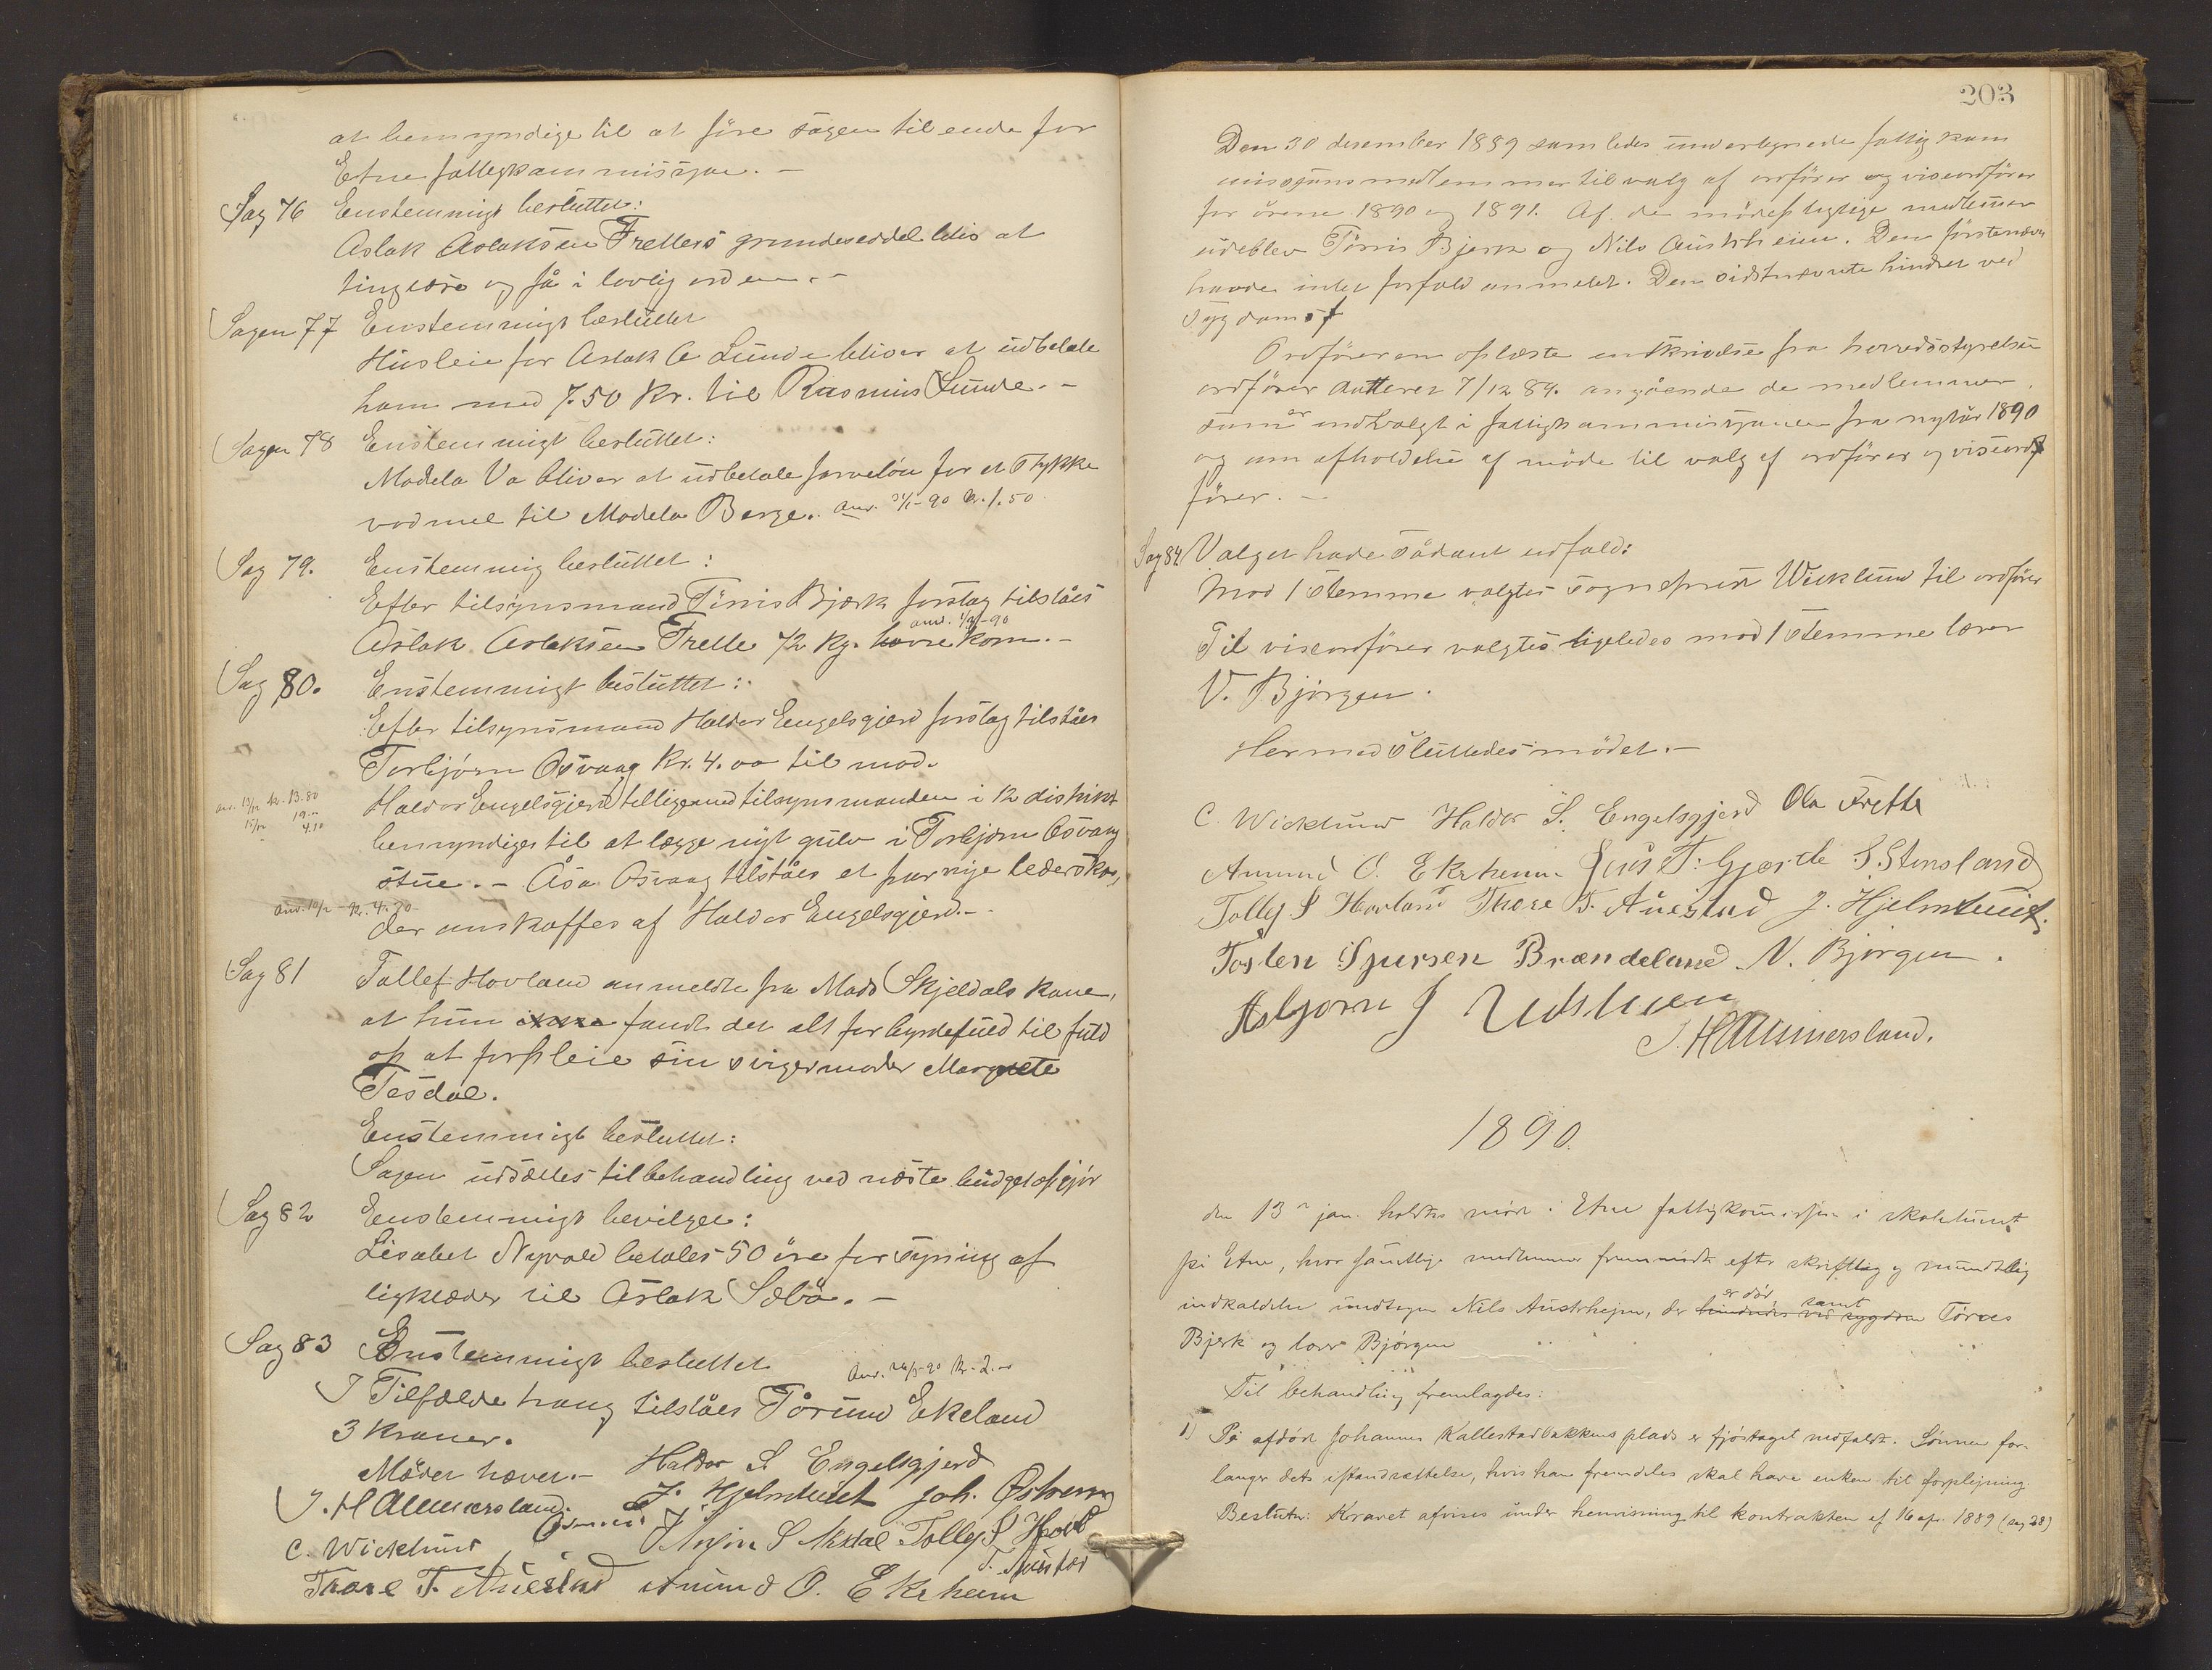 at bemyndige til at føre sagen tilende for
Etne fattigkommissjon. –
Sag 76 Enstemmigt besluttet:
Aslak Aslaksen Frettes grundeseddel blir at
tinglæse og få i lovlig orden. –
Sagen 77 Enstemmigt besluttet
Husleie for Aslak A Lunde bliver at udbetale
ham med 7.50 Kr. til Rasmus Lunde. –
Sagen 78 Enstemmigt besluttet:
Madela Va bliver at udbetale farveløn for et stykke
vadmel til Madela Berge. anv. -90 Kr. 1.50
Sag 79. Enstemmig besluttet:
Efter tilsynsmand Tørris Bjerk forslag tilståes
anv. -90
Aslak Aslaksen Frette 72 kg. havrekorn. –
Sag 80. Enstemmigt besluttet:
Efter tilsynsmand Haldor Engelsgjerd forslag tilståes
Torbjørn Osvaag Kr. 4.00 til mad.
anv. 13/12 kr. 13.80
15/12 19.–
4.10
Haldor Engelsgjerd tilligemed tilsynsmanden i 12 distrikt
bemyndiges til at lægge nyt gulv i Torbjørn Osvaag
stue. – Åsa Osvaag tilståes et par nye lædersko,
anv. 10/2 – Kr. 4.30
der anskaffes af Haldor Engelsgjerd. –
Sag 81 Tollef Hovland anmeldte fra Mads Skjeldals kone,
at hun fandt det alt for byrdefuld til fuld
op at forpleie sin svigermoder Margrete
Tesdal.
Enstemmigt besluttet:
Sagen udsættes til behandling ved næste budgetopgjør
Sag 82 Enstemmigt bevilget:
Lisabet Nyvold betales 50 øre for syning af
ligklæder til Aslak Sæbø. –
Sag 83 Enstemmigt besluttet
Anv. -90 Kr. 2.00
I Tilfælde trang tilståes Tørund Ekeland
3 Kroner.
Mødet hævet. – Haldor S. Engelsgjerd
J. Hammersland. J. Hjelmtveit Joh. Østrem
C. Wicklund S Mæhle Tollef S Hovld
T. Austad
Thore T. Auestad Amund O. Ekrheim
203
Den 30 desember 1889 samledes undertegnede fattigkom
missjonsmedlemmer til valg af ordfører og viseordfører
for årene 1890 og 1891. Af de mødepligtige medlemer
udeblev Tørris Bjerk og Nils Austrheim. Den førstenævn
havde intet forfald anmeldt. Den sidstnævnte hindret ved
sygdom.
Ordføreren oplæste en skrivelse fra herredsstyrelsen
ordfører datteret 7/12 89. angående de medlemmer
som er indvalgt i fattigkommissjonen fra nytår 1890
og om afholdelse af møde til valg af ordfører og viseord
fører. –
Sag 84 Valget hade sådant udfald:
Mod 1 stemme valgtes sogneprest Wicklund til ordfører
Til viseordfører valgtes ligeledes mod 1 stemme lærer
N. Bjørgen.
Hermed sluttedes mødet. –
C. Wicklund Haldor S. Engelsgjerd Ola Frette
Amund O. Ekrheim Jens T. Gjærde S. Stensland
Tollef S Hovland Thore T. Auestad J. Hjelmtveit.
Tosten Sjursen Brændeland. N. Bjørgen.
Asbjørn J
J. Hammersland.
1890.
den 13de jan. holdtes møde i Etne fattigkomissjon i skolehuset
på Etne, hvor samtlige medlemmer fremmødte efter skriftlig og mundtlig
er død samt
indkaldelse undtagen Nils Austrheim, der hindredes ved sygdom Tørres
Bjerk og lærer Bjørgen
Til behandling fremlagdes:
1) På afdøde Johannes Kallestadbakkens plads er fjøstaget nedfaldt. Sønnen for-
langer dets istandsættelse, hvis han fremdeles skal have enken til forplejning.
Besluttet: Kravet afvises under henvisning til kontrakten af 16 apr. 1889 (sag 28)